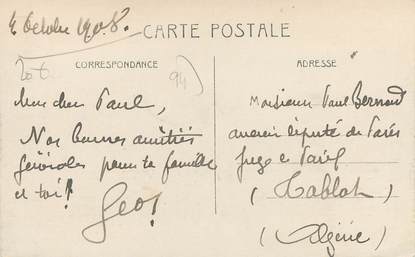 4 Octobre 1908.
CARTE POSTALE
CORRESPONDANCE
ADRESSE
94
Mon cher Paul,
Nos bonnes amitiés
générales pour ta famille
et toi!
Geo!
Monsieur Paul Bernard
ancien député de Paris
juge
(Tablat)
(Algérie)